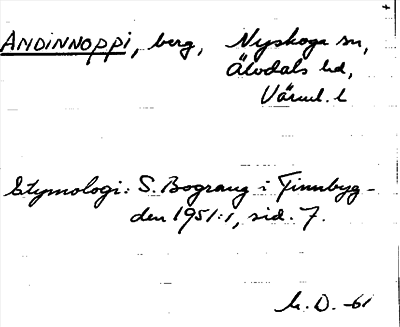 ANDINNOPPI, berg, Nyskoga sn,
Älvdals hd,
Värml. l
Etymologi: S. Bograng i Finnbyg-
den 1951:1, sid. 7.
D. -61